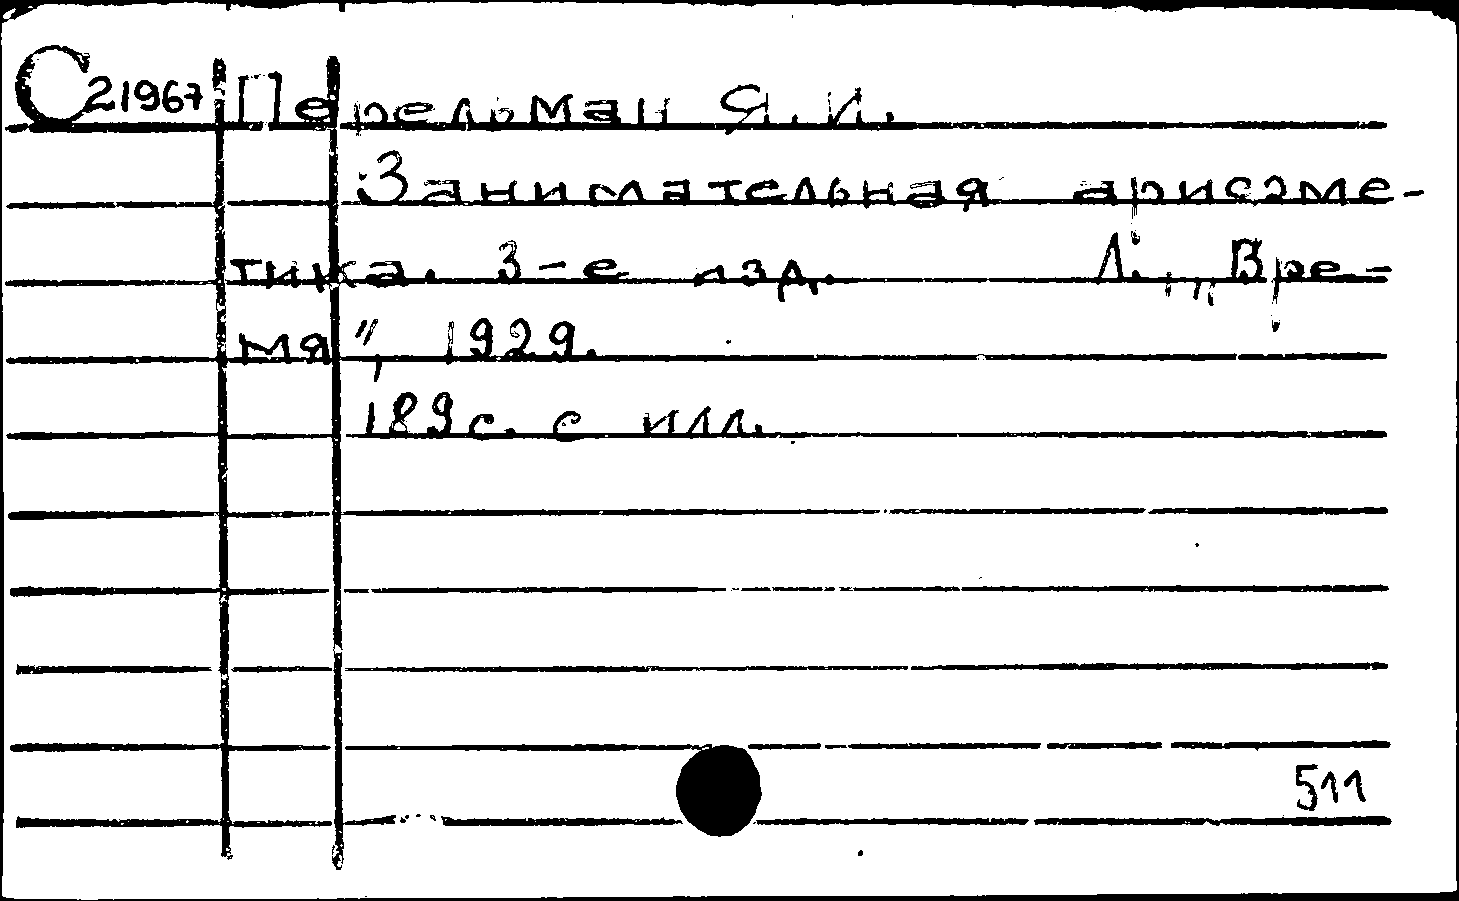 С21967 Перельман Я. И.
Занимательная арисэме-
тика. 3-е изд. Л., „Вре-
мя", 1929.
189с. с илл.
511